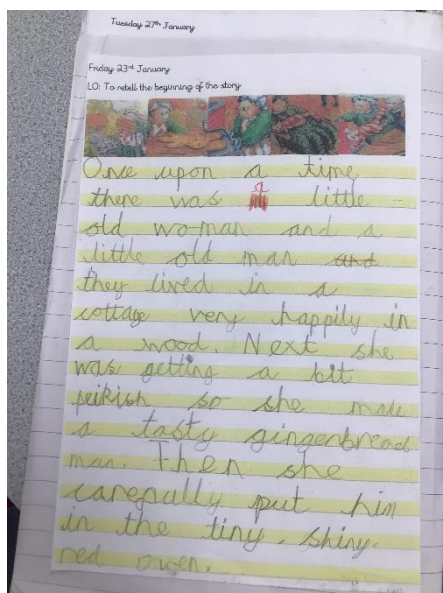 Tuesday 27th January
Friday 23rd January
LO: To retell the beginning of the story
Once upon a time
there was a little
old wo-man and a
little old man and
they lived in a
cottage very happily in
a wood. Next she
was getting a bit
peikish so she made
a tasty gingerbread
man. Then she
carefully put him
in the tiny, shiny,
red owen.